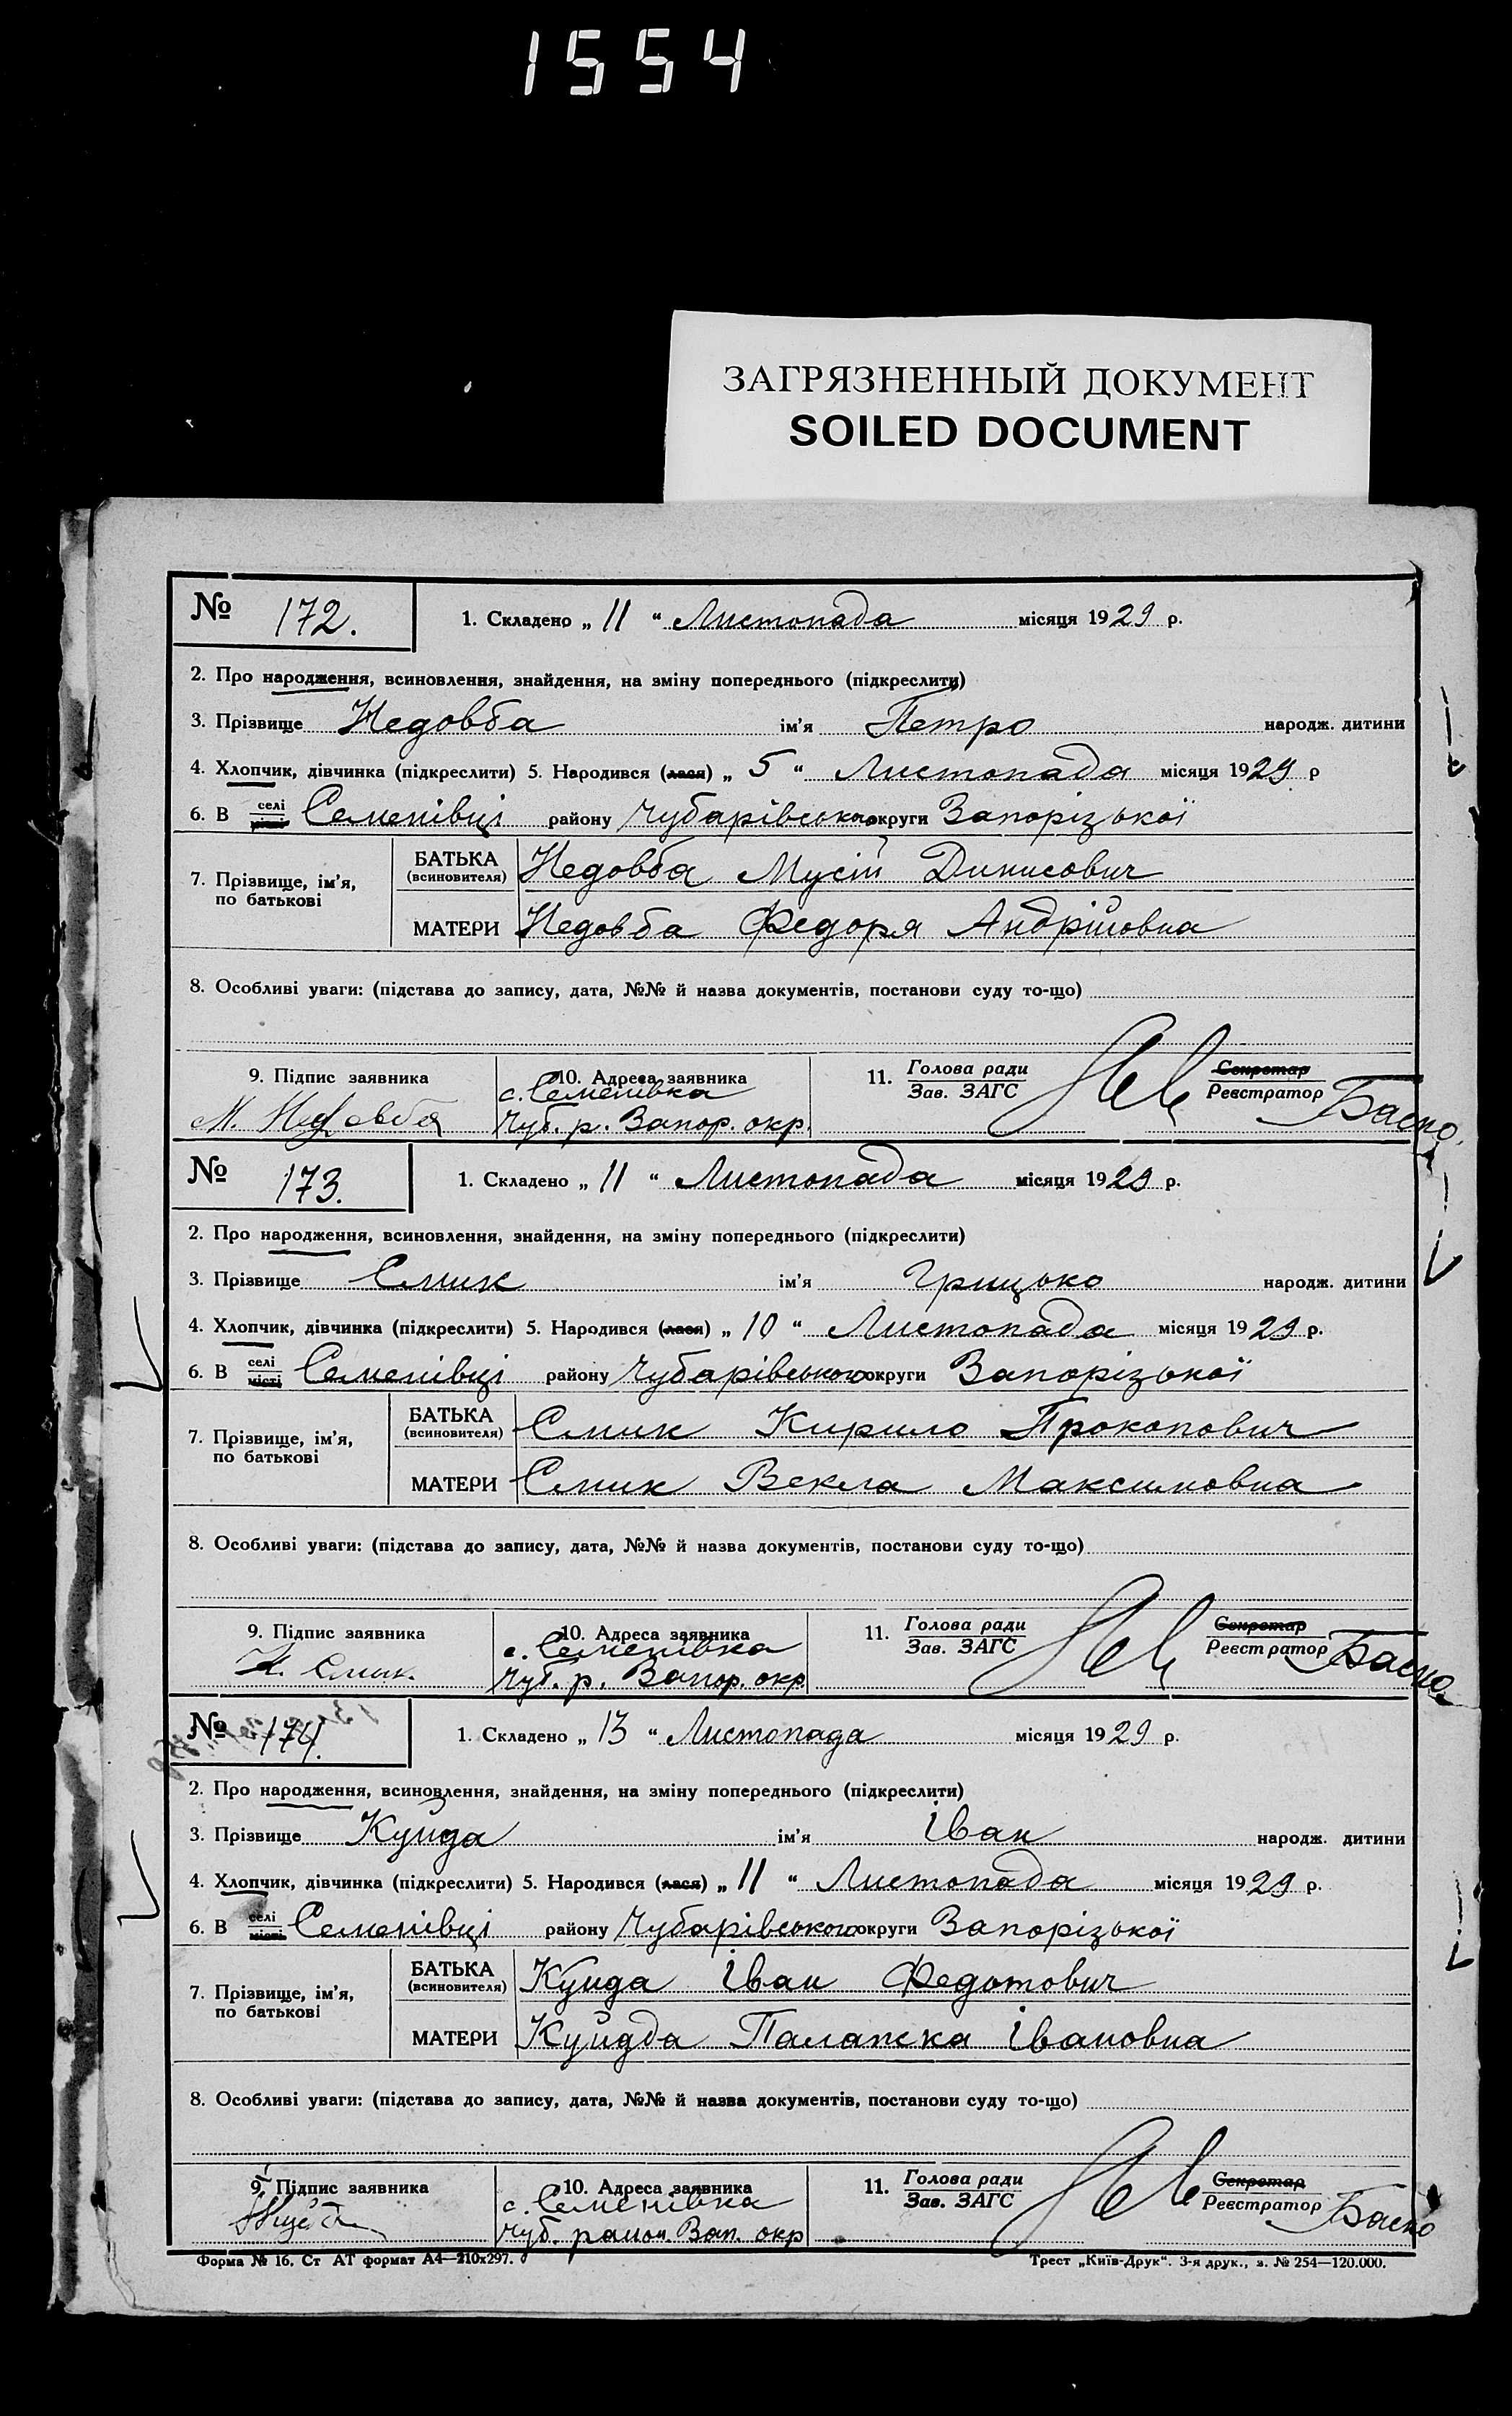 1554
ЗАГРЯЗНЕННЫЙ ДОКУМЕНТ
SOILED DOCUMENT
№ 172. 1. Складено „ 11 “ Листопада місяця 1929 р.
2. Про народження, всиновлення, знайдення, на зміну попереднього (підкреслити)
3. Прізвище Недовба ім’я Петро народж. дитини
4. Хлопчик, дівчинка (підкреслити) 5. Народився (лася) „ 5 “ Листопада місяця 1929 р
6. В селі місті Семенівці району Чубарівського округи Запорізької
7. Прізвище, ім’я, по батькові
БАТЬКА (всиновителя) Недовба Мусій Динисович
МАТЕРИ Недовба Федоря Андрійовна
8. Особливі уваги: (підстава до запису, дата, №№ й назва документів, постанови суду то-що)
9. Підпис заявника 10. Адреса заявника 11. Голова ради Секретар
Зав. ЗАГС Реєстратор
М. Недовба с. Семенівка
Чуб. р. Запор. окр.
№ 173. 1. Складено „ 11 “ Листопада місяця 1929 р.
2. Про народження, всиновлення, знайдення, на зміну попереднього (підкреслити)
3. Прізвище Смик ім’я Грицько народж. дитини
4. Хлопчик, дівчинка (підкреслити) 5. Народився (лася) „ 10 “ Листопада місяця 1929 р.
6. В селі місті Семенівці району Чубарівського округи Запорізької
7. Прізвище, ім’я, по батькові
БАТЬКА (всиновителя) Смик Кирило Прокопович
МАТЕРИ Смик Векла Максимовна
8. Особливі уваги: (підстава до запису, дата, №№ й назва документів, постанови суду то-що)
9. Підпис заявника 10. Адреса заявника 11. Голова ради Секретар
Зав. ЗАГС Реєстратор
К. Смик. с. Семенівка
Чуб. р. Запор. окр
№ 174. 1. Складено „ 13 “ Листопада місяця 1929 р.
2. Про народження, всиновлення, знайдення, на зміну попереднього (підкреслити)
3. Прізвище Куйда ім’я Іван народж. дитини
4. Хлопчик, дівчинка (підкреслити) 5. Народився (лася) „ 11 “ Листопада місяця 1929 р.
6. В селі місті Семенівці району Чубарівського округи Запорізької
7. Прізвище, ім’я, по батькові
БАТЬКА (всиновителя) Куйда Іван Федотович
МАТЕРИ Куйдда Палажка Івановна
8. Особливі уваги: (підстава до запису, дата, №№ й назва документів, постанови суду то-що)
9. Підпис заявника 10. Адреса заявника 11. Голова ради Секретар
Зав. ЗАГС Реєстратор
с. Семенівка
Чуб. район. Зап. окр
Форма № 16. Ст АТ формат А4—210х297. Трест „Київ-Друк“. 3-я друк., з. № 254—120.000.